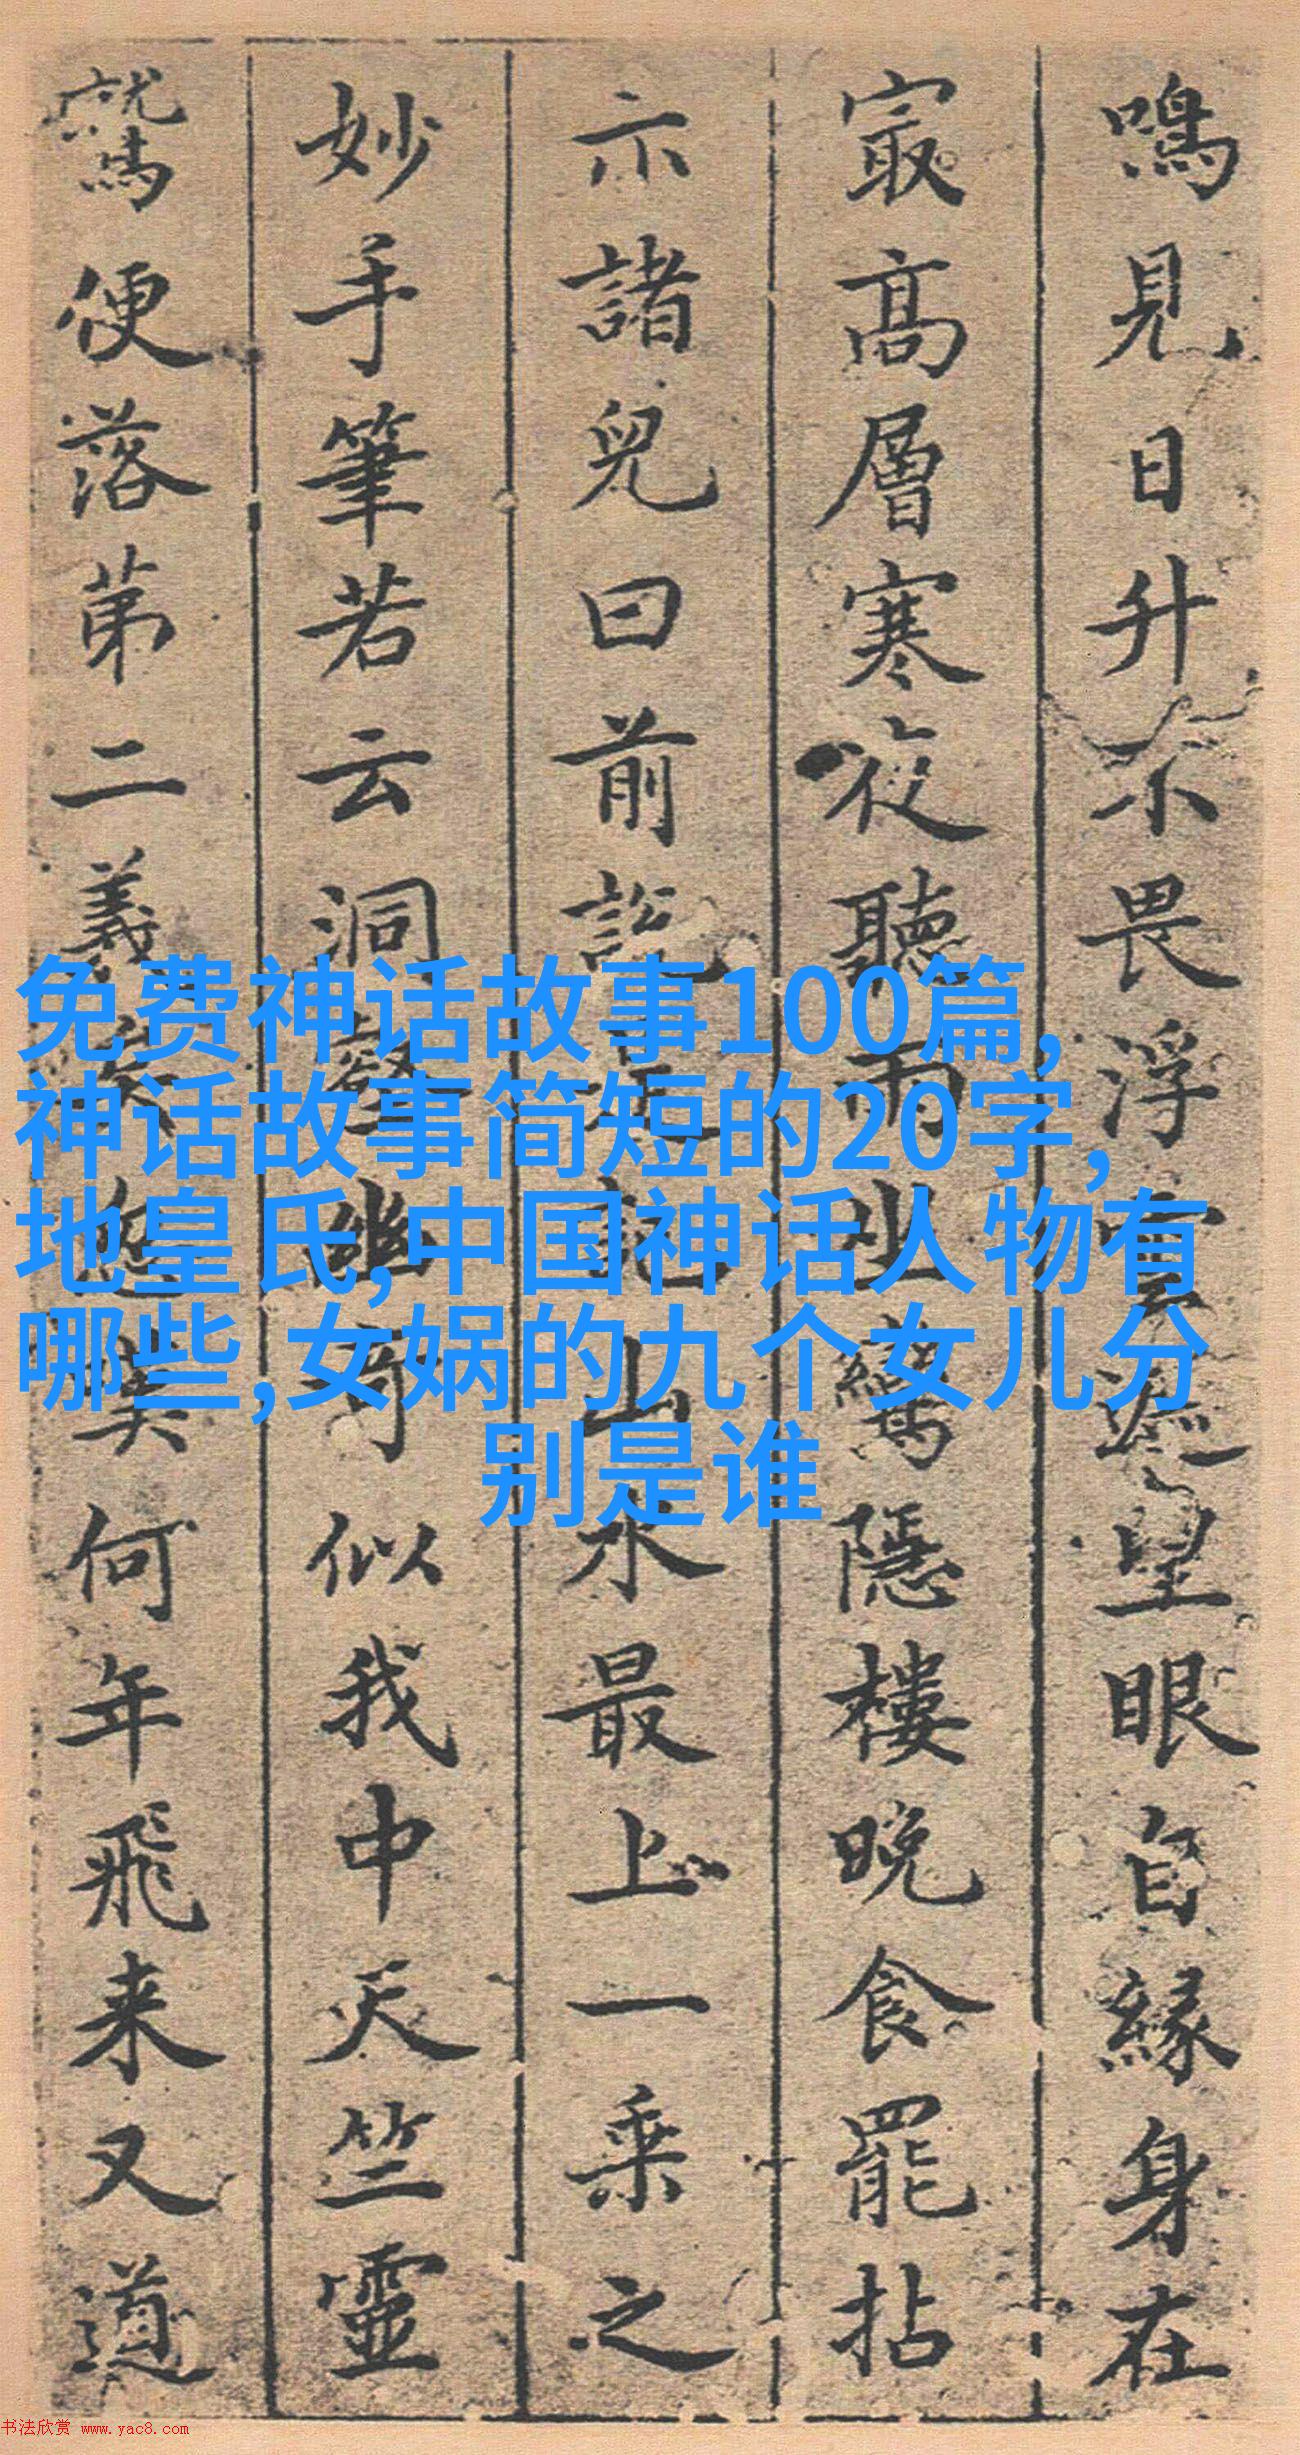 鳴見日升不畏浮雲遮望眼自緣身在
㝡高層寒夜聽雨坐鸞隱樓晚食罷拈
示諸兒曰前説山水最上一乘之
妙手筆若云洞壑幽奇似我中天竺靈
鷲便落第二義何年飛来又道
免费神话故事100篇,
神话故事简短的20字,
地皇氏,中国神话人物有
哪些,女娲的九个女儿分
别是谁
书法欣赏 www.yac8.com